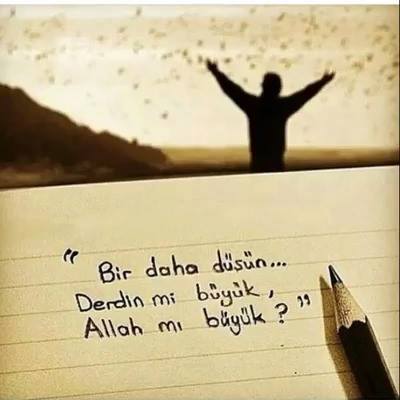 " Bir daha düşün...
Derdin mi büyük,
Allah mı büyük ? "